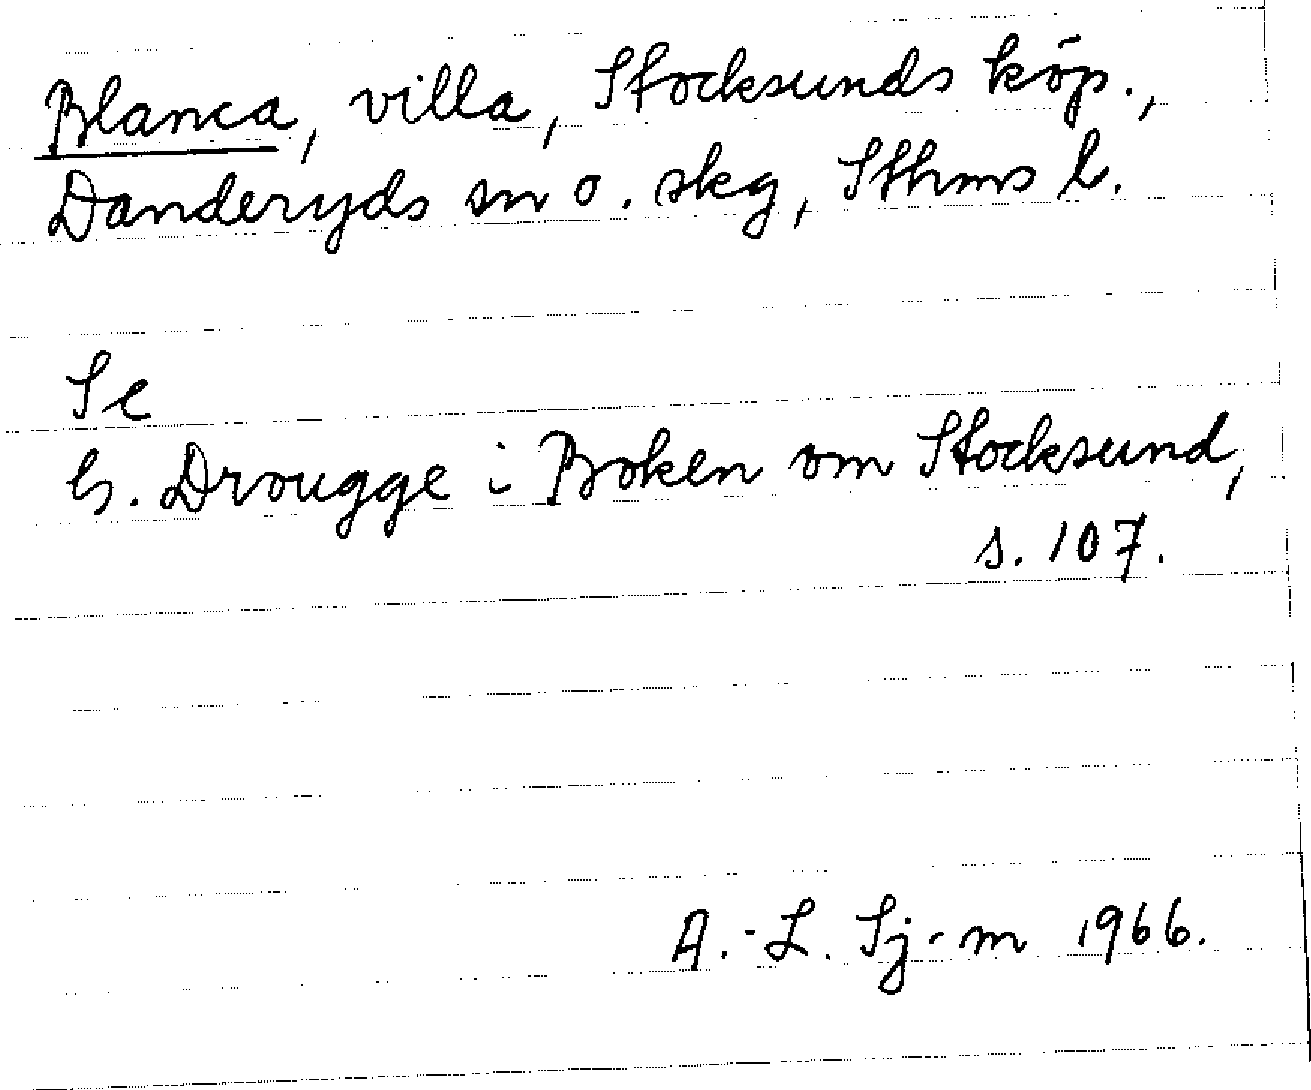 Blanca, villa, Stocksunds köp.,
Danderyds sn o. skg, Sthms l.
Se
G. Drougge i Boken om Stocksund,
s. 107.
A.-L. Sj-m 1966.